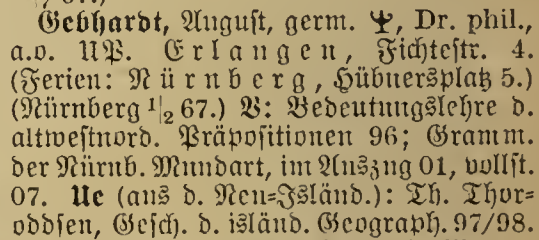 Gebhardt, August, germ. Ψ, Dr. phil.,
a.o. UP. Erlangen, Fichtestr. 4.
(Ferien: Nürnberg, Hübnersplatz 5.)
(Nürnberg 1/2 67.) V: Bedeutungslehre d.
altwestnord. Präpositionen 96; Gramm.
der Nürnb. Mundart, im Auszug 01, vollst.
07. Ue (aus d. Neu-Isländ.): Th. Thor=
oddsen, Gesch. d. isländ. Geograph. 97/98.